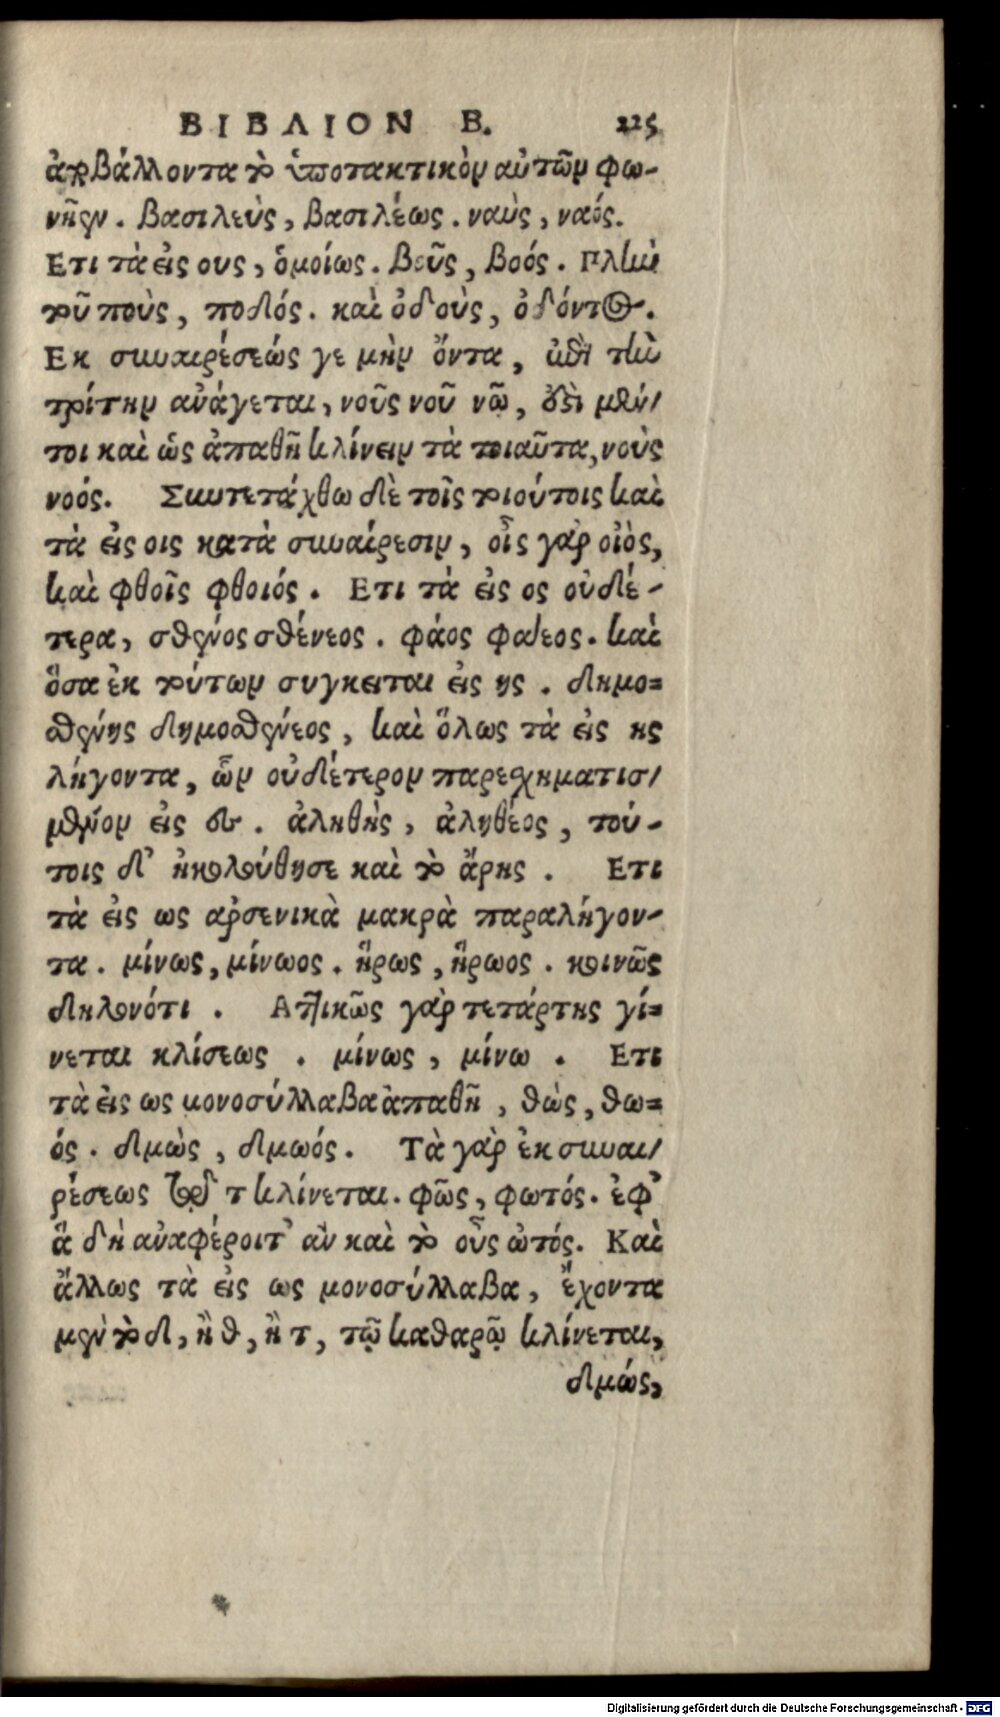 ΒΙΒΛΙΟΝ Β. 225
ἀποβάλλοντα τὸ ὑποτακτικὸν αὐτῶν φω-
νῆεν. βασιλεὺς, βασιλέως. ναὺς, ναός.
Ετι τὰ εἰς ους, ὁμοίως. βοῦς, βοός. Πλὴν
τοῦ ποὺς, ποδός. καὶ ὀδοὺς, ὀδόντος.
Εκ συναιρέσεώς γε μὴν ὄντα, ἐπὶ τὴν
τρίτην ἀνάγεται, νοῦς νοῦ νῷ, ἔδει μέν/
τοι καὶ ὡς ἀπαθῆ κλίνειν τὰ τοιαῦτα, νοὺς
νοός. Συντετάχθω δὲ τοῖς τοιούτοις καὶ
τὰ εἰς οις κατὰ συναίρεσιν, οἶς γὰρ οἰὸς,
καὶ φθοῖς φθοιός. Ετι τὰ εἰς ος οὐδέ-
τερα, σθένος σθένεος. φάος φάεος. καὶ
ὅσα ἐκ τούτων συγκειται εἰς ης. δημο=
σθένης δημοσθένεος, καὶ ὅλως τὰ εἰς ης
λήγοντα, ὧν οὐδέτερον παρεσχηματισ/
μένον εἰς ες. ἀληθὴς, ἀληθέος, τού-
τοις δ' ἠκολούθησε καὶ τὸ ἄρης. Ετι
τὰ εἰς ως αρσενικὰ μακρὰ παραλήγον-
τα. μίνως, μίνωος. ἥρως, ἥρωος. κοινῶς
δηλονότι. Αττικῶς γὰρ τετάρτης γί=
νεται κλίσεως. μίνως, μίνω. Ετι
τὰ εἰς ως μονοσύλλαβα ἀπαθῆ, θὼς, θω=
ός. δμὼς, δμωός. Τὰ γὰρ ἐκ συναι/
ρέσεως διὰ τοῦ τ κλίνεται. φῶς, φωτός. ἐφ'
ἃ δὴ ἀναφέροιτ' ἂν καὶ τὸ οὖς ὠτός. Καὶ
ἄλλως τὰ εἰς ως μονοσύλλαβα, ἔχοντα
μὲν τὸ δ, ἢ θ, ἢ τ, τῷ καθαρῷ κλίνεται,
δμώς,
Digitalisierung gefördert durch die Deutsche Forschungsgemeinschaft - DFG